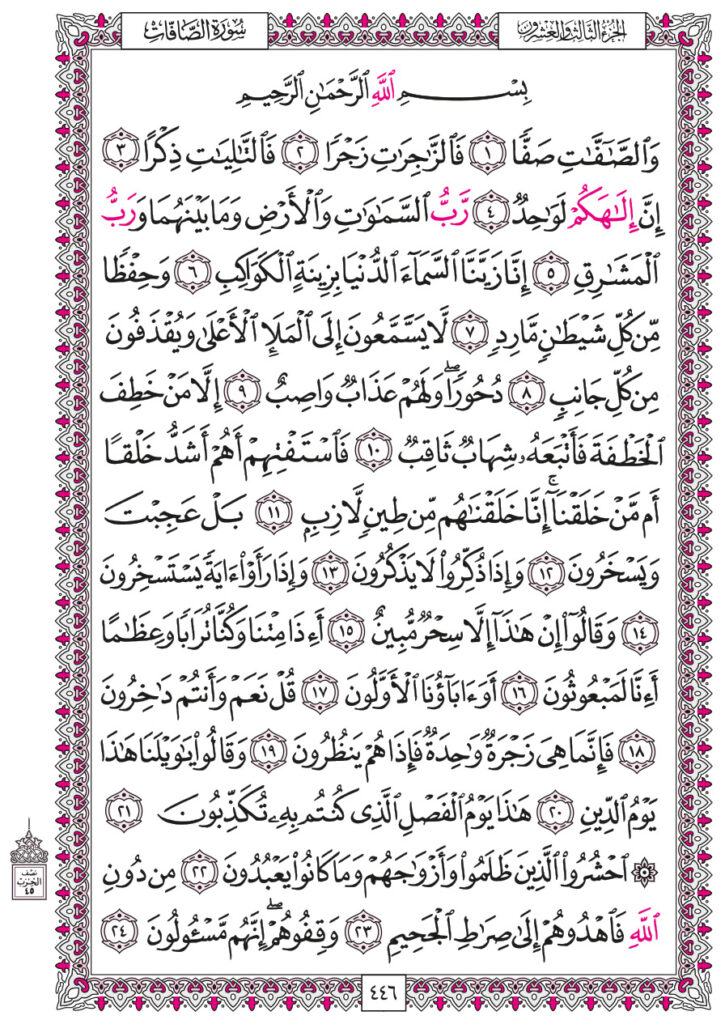 الجزء الثالث والعشرون
سورة الصافات
بِسْمِ اللَّهِ الرَّحْمَٰنِ الرَّحِيمِ
وَالصَّافَّاتِ صَفًّا ١ فَالزَّاجِرَاتِ زَجْرًا ٢ فَالتَّالِيَاتِ ذِكْرًا ٣
إِنَّ إِلَٰهَكُمْ لَوَاحِدٌ ٤ رَّبُّ السَّمَاوَاتِ وَالْأَرْضِ وَمَا بَيْنَهُمَا وَرَبُّ
الْمَشَارِقِ ٥ إِنَّا زَيَّنَّا السَّمَاءَ الدُّنْيَا بِزِينَةٍ الْكَوَاكِبِ ٦ وَحِفْظًا
مِّن كُلِّ شَيْطَانٍ مَّارِدٍ ٧ لَّا يَسَّمَّعُونَ إِلَى الْمَلَإِ الْأَعْلَىٰ وَيُقْذَفُونَ
مِن كُلِّ جَانِبٍ ٨ دُحُورًا ۖ وَلَهُمْ عَذَابٌ وَاصِبٌ ٩ إِلَّا مَنْ خَطِفَ
الْخَطْفَةَ فَأَتْبَعَهُ شِهَابٌ ثَاقِبٌ ١٠ فَاسْتَفْتِهِمْ أَهُمْ أَشَدُّ خَلْقًا
أَم مَّنْ خَلَقْنَا ۚ إِنَّا خَلَقْنَاهُم مِّن طِينٍ لَّازِبٍ ١١ بَلْ عَجِبْتَ
وَيَسْخَرُونَ ١٢ وَإِذَا ذُكِّرُوا لَا يَذْكُرُونَ ١٣ وَإِذَا رَأَوْا آيَةً يَسْتَسْخِرُونَ
١٤ وَقَالُوا إِنْ هَٰذَا إِلَّا سِحْرٌ مُّبِينٌ ١٥ أَإِذَا مِتْنَا وَكُنَّا تُرَابًا وَعِظَامًا
أَإِنَّا لَمَبْعُوثُونَ ١٦ أَوَآبَاؤُنَا الْأَوَّلُونَ ١٧ قُلْ نَعَمْ وَأَنتُمْ دَاخِرُونَ
١٨ فَإِنَّمَا هِيَ زَجْرَةٌ وَاحِدَةٌ فَإِذَا هُمْ يَنظُرُونَ ١٩ وَقَالُوا يَا وَيْلَنَا هَٰذَا
يَوْمُ الدِّينِ ٢٠ هَٰذَا يَوْمُ الْفَصْلِ الَّذِي كُنتُم بِهِ تُكَذِّبُونَ ٢١
۞ احْشُرُوا الَّذِينَ ظَلَمُوا وَأَزْوَاجَهُمْ وَمَا كَانُوا يَعْبُدُونَ ٢٢ مِن دُونِ
اللَّهِ فَاهْدُوهُمْ إِلَىٰ صِرَاطِ الْجَحِيمِ ٢٣ وَقِفُوهُمْ ۖ إِنَّهُم مَّسْئُولُونَ ٢٤
نصف
الحزب
٤٥
٤٤٦